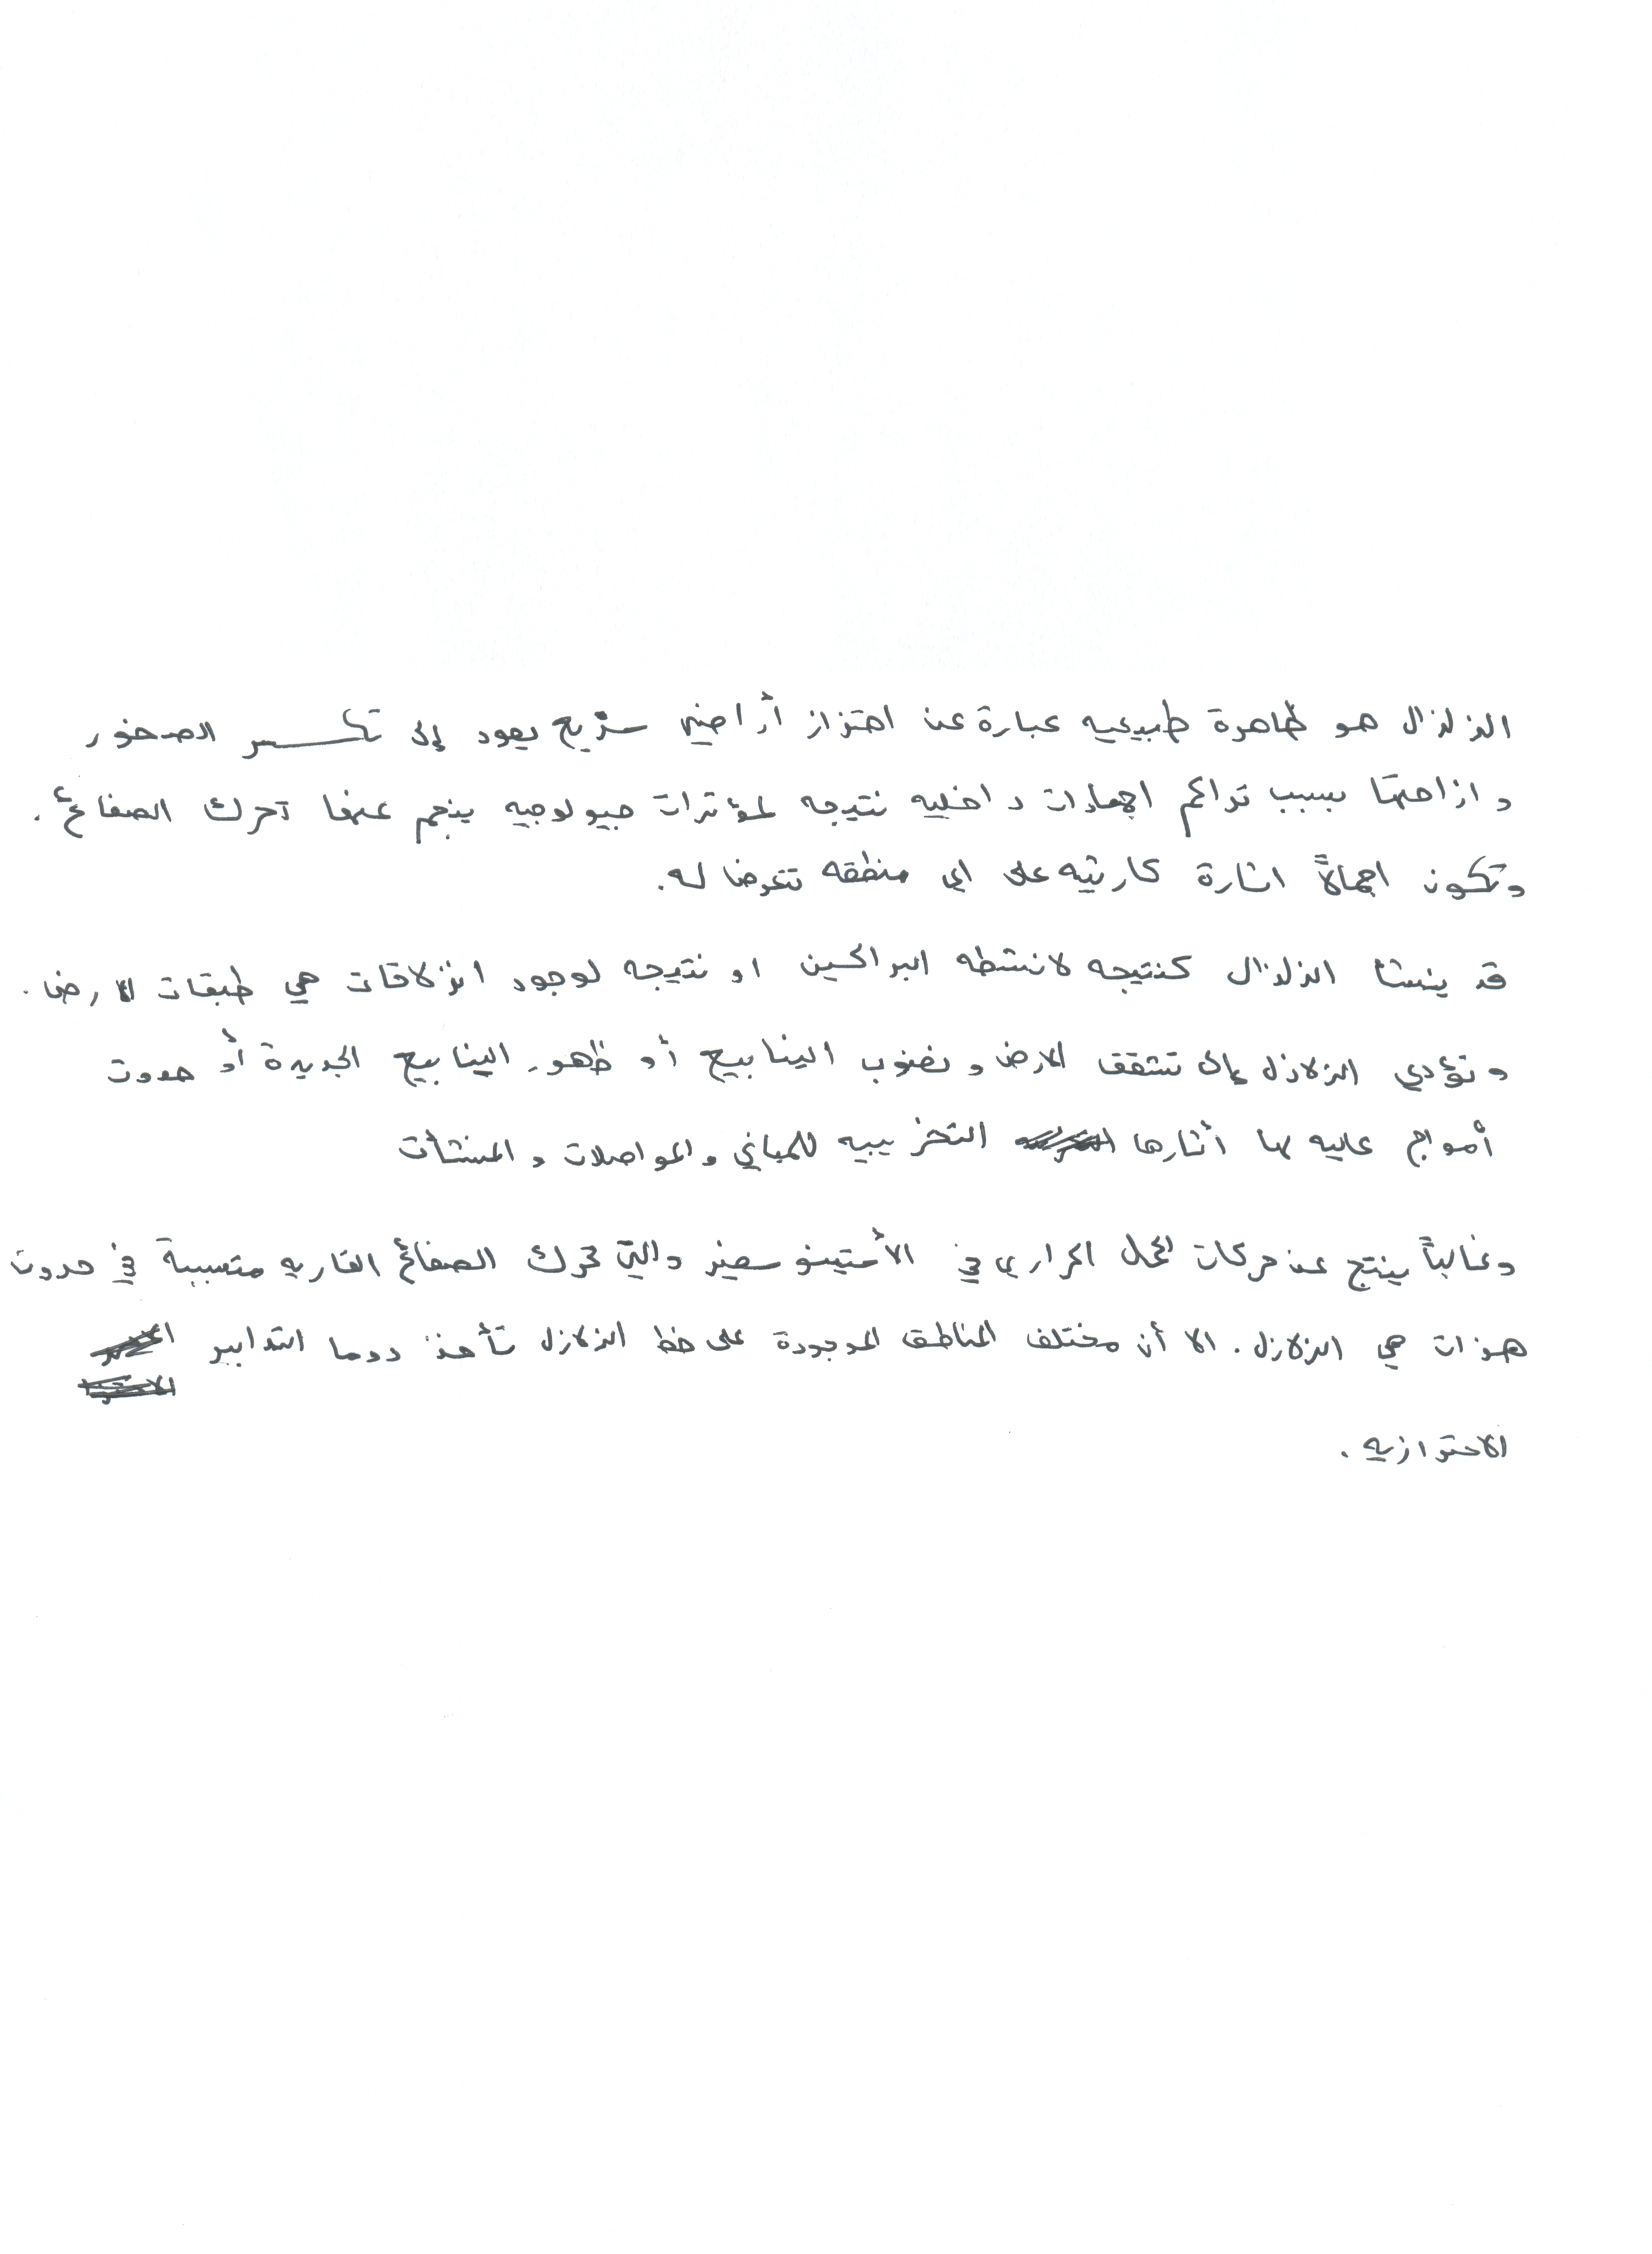 الزلزال هو ظاهرة طبيعيه عبارة عن اهتزاز أراضي سريع يعود إلى تكسر الصخور
وازاحتها بسبب تراكم اجهادات داخليه نتيجه لمؤثرات جيولوجيه ينجم عنها تحرك الصفائح.
وتكون اجمالاً اثارة كارثيه على اي منطقه تتعرض له.
قد ينشأ الزلزال كنتيجه لانشطه البراكين او نتيجه لوجود انزلاقات هي طبقات الارض.
وتؤدي الزلازل إلى تشقق الارض ونضوب الينابيع أو ظهور الينابيع الجديرة أو حدوث
أمواج عاليه لها أثارها التخريبيه للمباني والمواصلات والمنشأت
وغالباً ينتج عن حركات الحمل الحراري في الأستينوسفير والتي تحرك الصفائح القاريه متسببة في حدوث
هزات هي الزلازل. الا أن مختلف المناطق الموجودة على خط الزلازل تأخذ دوما التدابير
الاحترازيه.